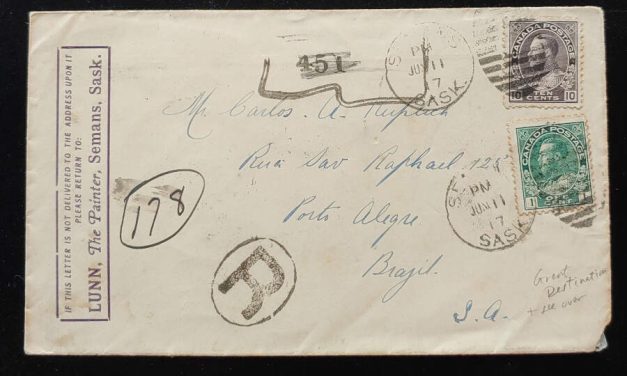 IF THIS LETTER IS NOT DELIVERED TO THE ADDRESS UPON IT
PLEASE RETURN TO:
LUNN, The Painter, Semans, Sask.
451
PM
JUN 11
17
SASK.
CANADA POSTAGE
10 10
TEN CENTS
Mr. Carlos A.
Rua Sav Raphael 125
Porto Alegre
Brazil.
S.A.
178
R
PM
JUN 11
17
SASK.
CANADA POSTAGE
1
Great
Destination
+ see over